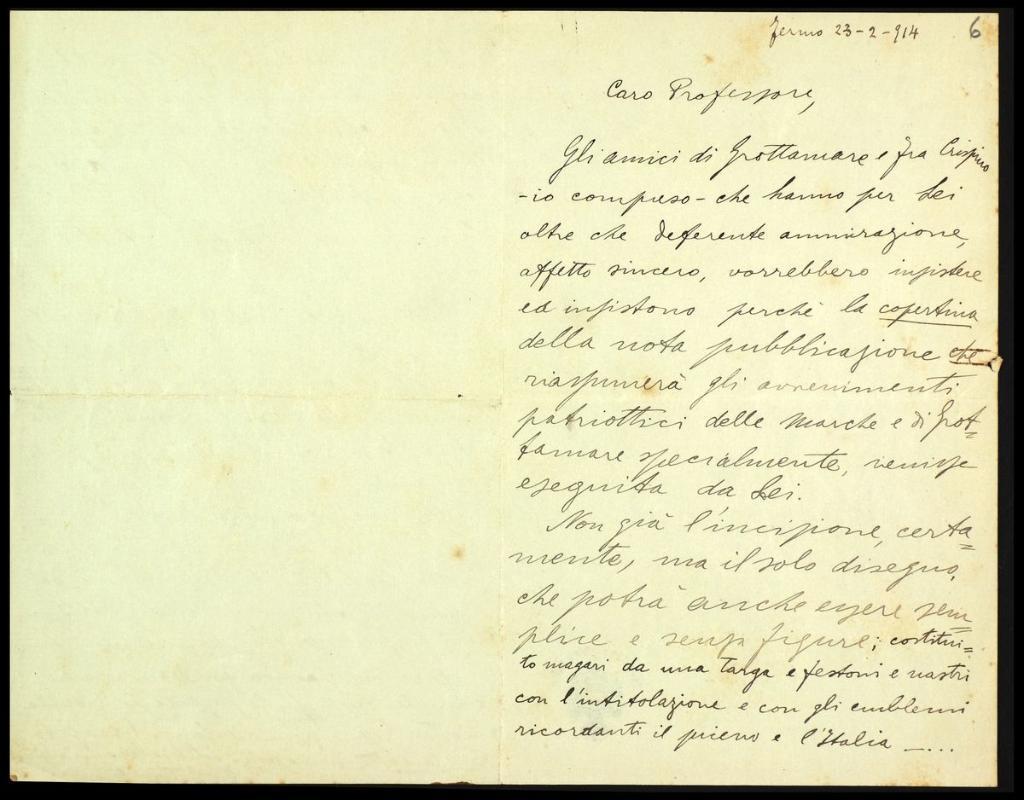 Fermo 23-2-914
6
Caro Professore,
Gli amici di Grottamare e Fra Crispino
- io compreso - che hanno per Lei
oltre che deferente ammirazione,
affetto sincero, vorrebbero insistere
ed insistono perchè la copertina
della nota pubblicazione che
riassumerà gli avvenimenti
patriottici delle Marche e di Grot=
tamare specialmente, venisse
eseguita da Lei.
Non già l'incisione, certa=
mente, ma il solo disegno,
che potrà anche essere sem=
plice e senza figure; costitui=
to magari da una targa e festoni e nastri
con l'intitolazione e con gli emblemi
ricordanti il piceno e l'Italia -....